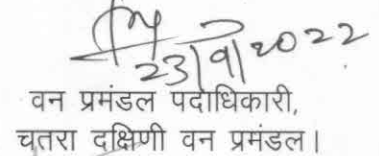 23/9/2022
वन प्रमंडल पदाधिकारी,
चतरा दक्षिणी वन प्रमंडल।